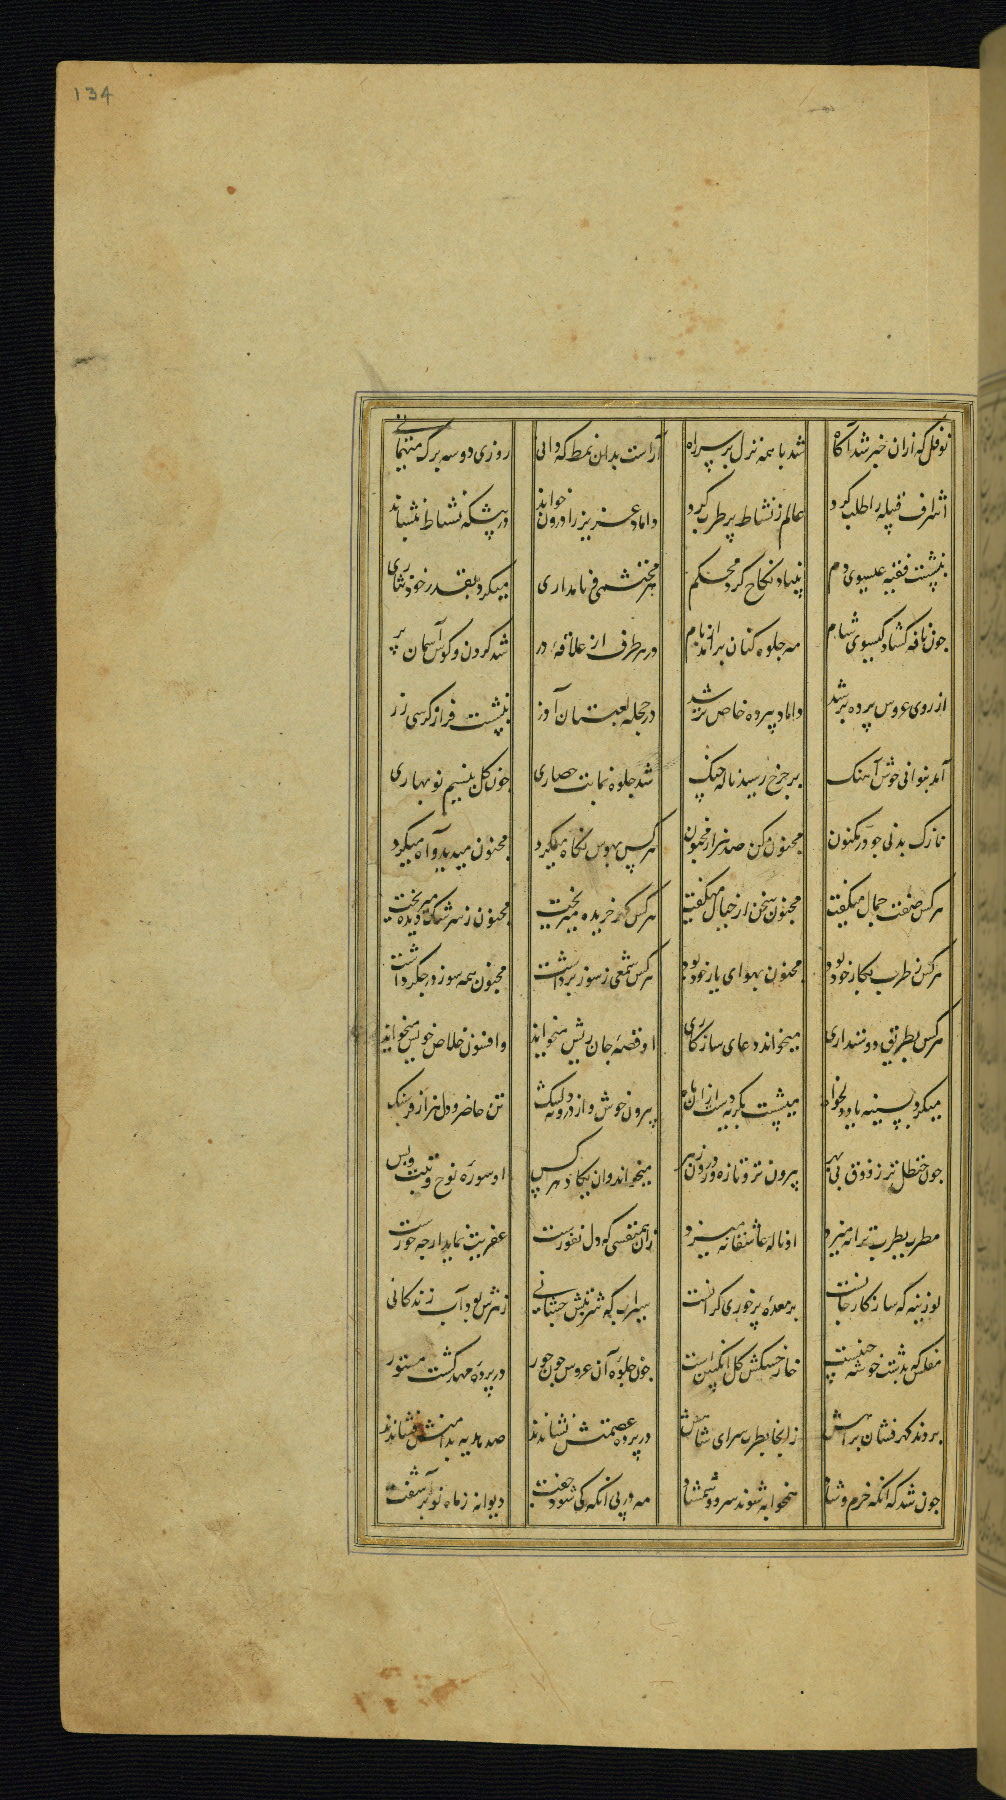 134
نوفل که ازان خبر شد آگاه شد با همه نزل بر سر راه آراست بدان نمط که دانی روزی دو سه برگ میهمانی
اشراف قبیله را طلب کرد عالم ز نشاط پر طرب کرد داماد عزیز را درون خواند در پیشکه نشاط بنشاند
بنشست فقیه عیسوی دم بنیاد نکاح کرد محکم هر محتشمی و نامداری میکرد بقدر خود نثاری
چون نافه کشاد کیسوی شام مه جلوه کنان برآمد از بام در هر طرف از علاقهٔ در شد کردن و کوش آسمان پر
از روی عروس پرده بر شد داماد بپرده خاص تر شد در حجله لعبتان آذر بنشست فراز کرسی زر
آمد بنوا نی خوش آهنک بر چرخ رسید ناله چنک شد جلوه نما بت حصاری چون کل بنسیم نوبهاری
نازک بدنی چو در مکنون مجنون کن صد هزار مجنون هر کس بهوس نکاه میکرد مجنون میدید و آه میکرد
هر کس صفت جمال میکفت مجنون سخن از خیال میکفت هر کس کهر خریده میریخت مجنون ز سرشک دیده میریخت
هر کس ز طرب بکار خود بود مجنون بهوای یار خود بود هر کس شمعی ز سوز برداشت مجنون همه سوز در جکر داشت
هر کس بطریق دوستداری میخواند دعای سازکاری او قصهٔ جان ریش میخواند و افسون خلاص خویش میخواند
بیرون خوش و از درون تن حاضر و دل هزار فرسنک
چون حنظل تر ز ذوق بی بهر بیرون تر و تازه و درون زهر میخواند وان یکاد هر کس او سورهٔ نوح و تبت و بس
مطرب بطرب ترانه میزد او ناله عاشقانه میزد زان همنفسی که دل نفورست عفریت نماید ار چه حورست
لوزینه که سازکار جانست بر معدهٔ پر خوری کرانست سیراب که شربتش چشانی زهرش بود آب زندکانی
خار خسکش کل انکبین است چون جلوهٔ آن عروس چون حور در پردهٔ مهد کشت مستور
بردند کهر فشان براهش زانجا بطرب سرای شاهش در پرده عصمتش نشاندند صد هدیه بدامنش فشاندند
چون شد که آنکه خرم و شاد همخوابه شوند سرو و شمشاد مه در پی آنکه کی شود جفت دیوانه ز ماه نو برآشفت